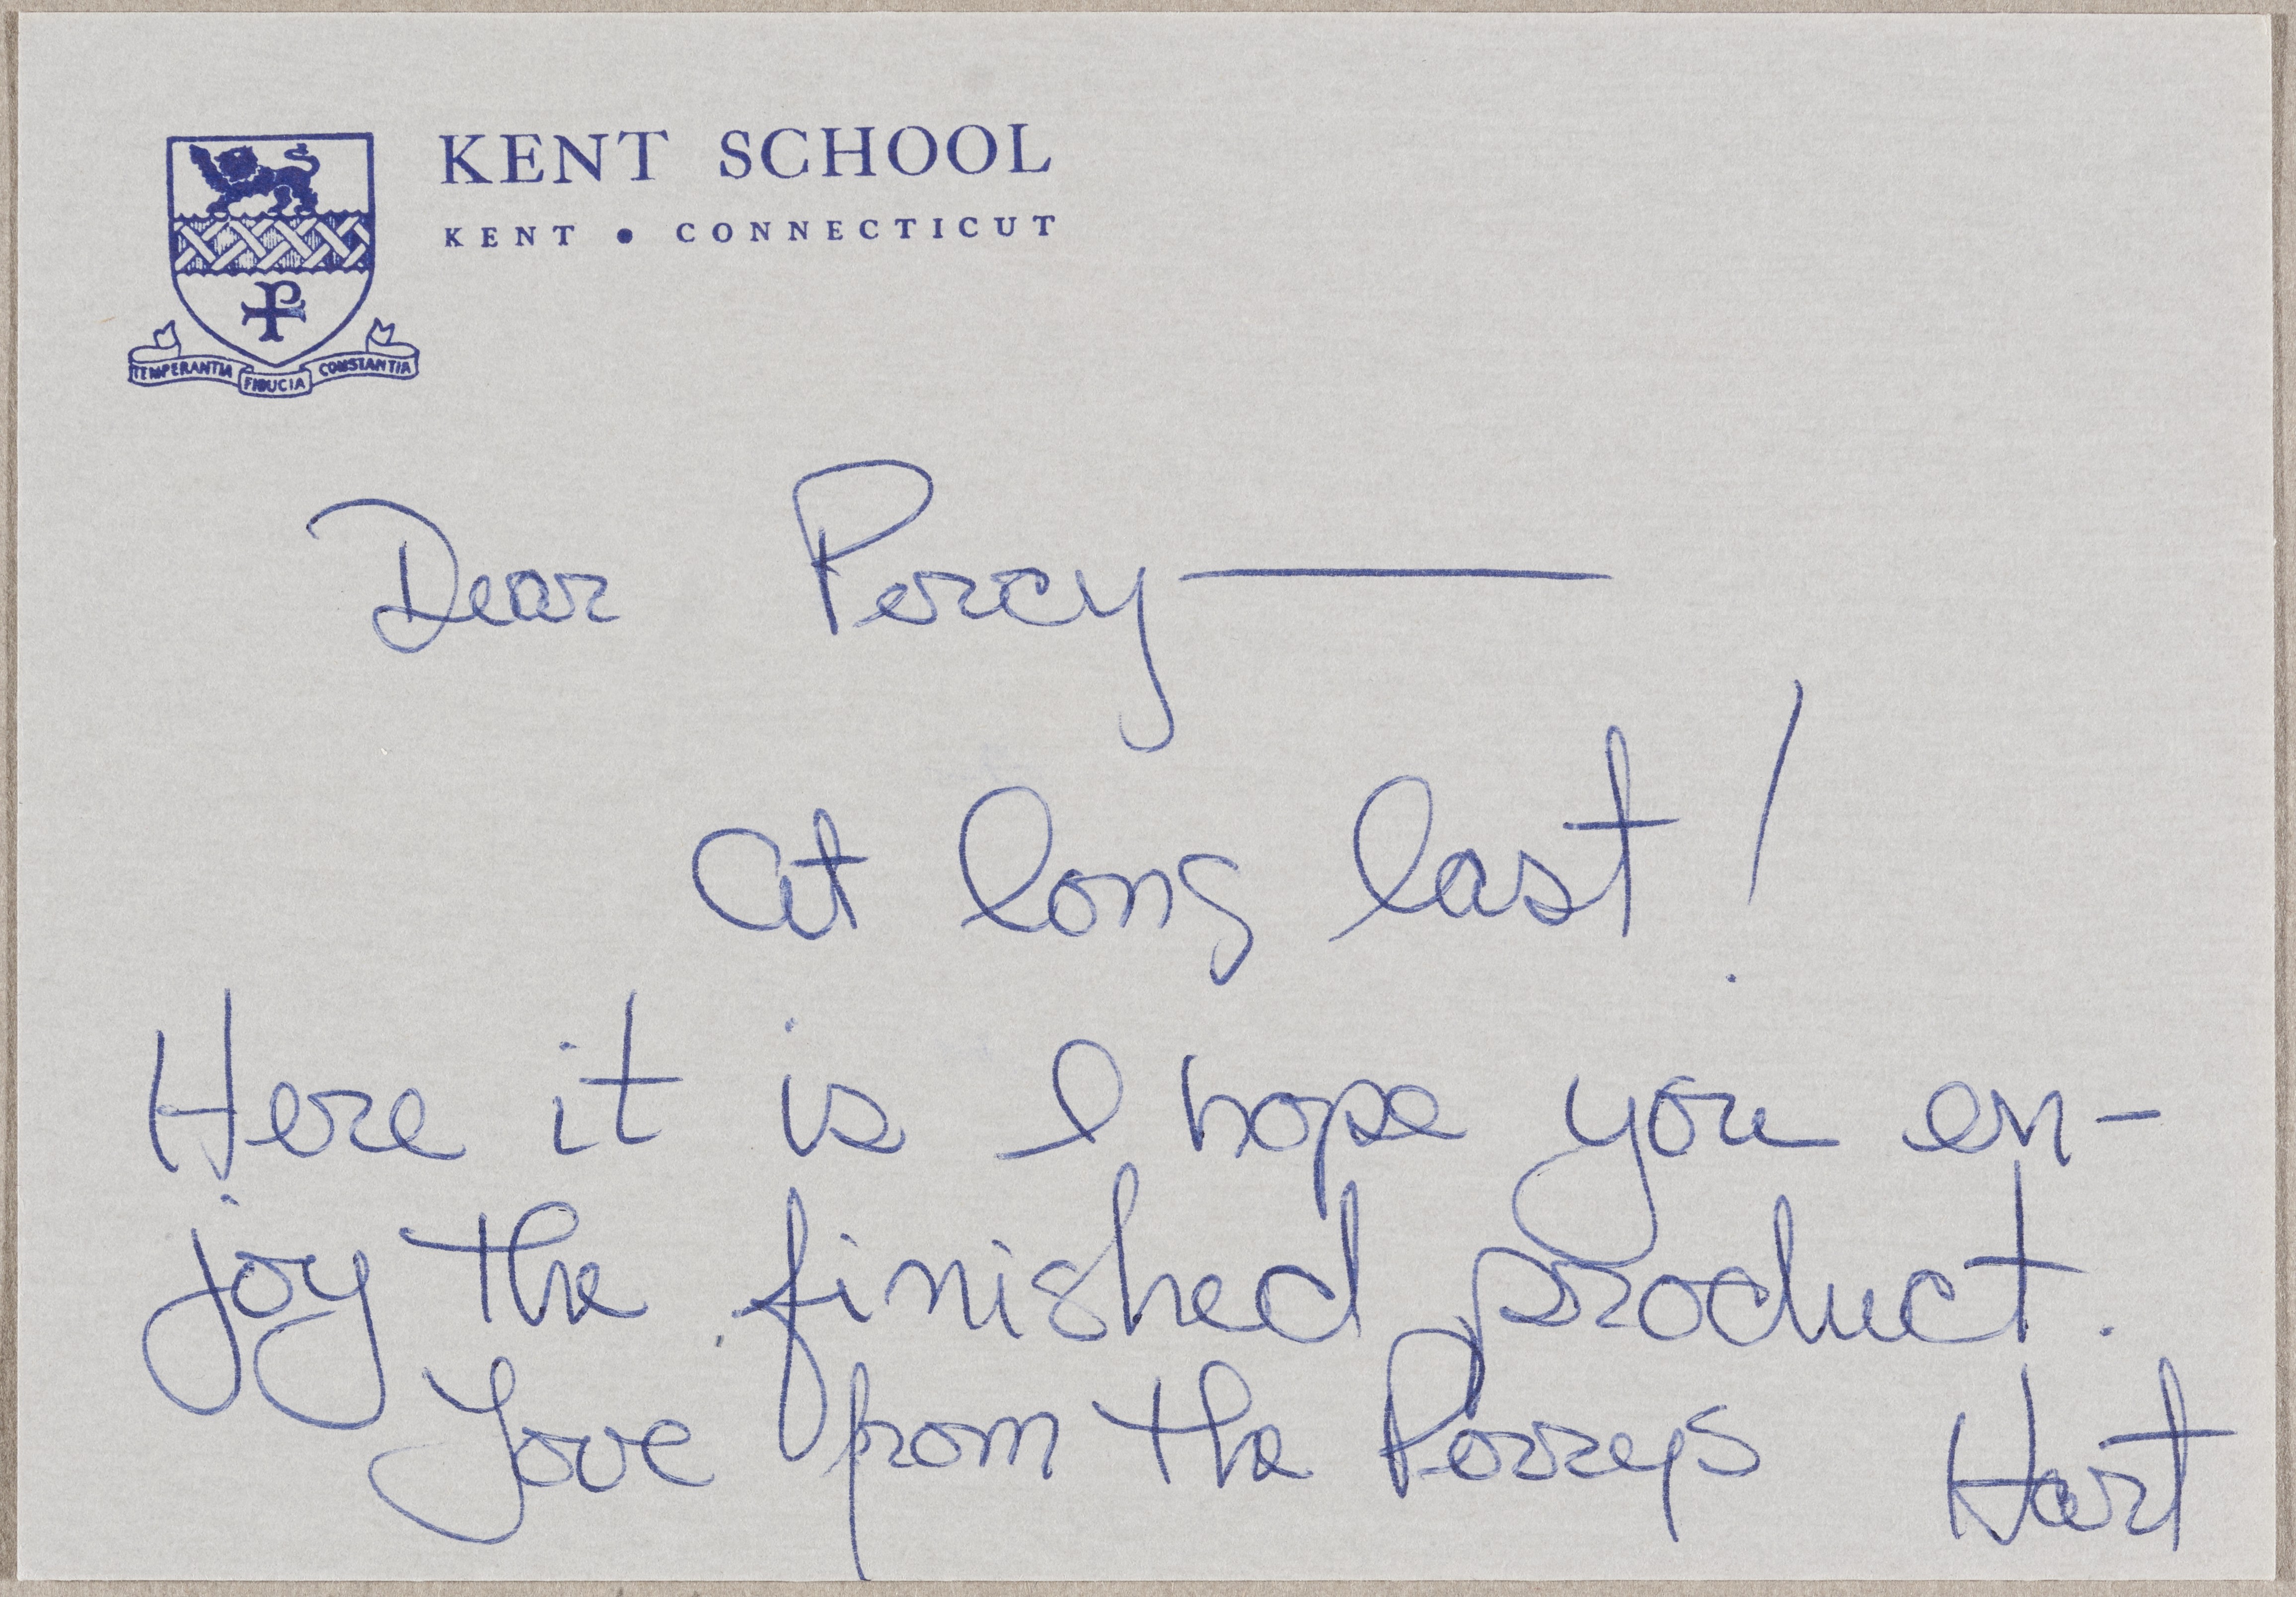 KENT SCHOOL
KENT • CONNECTICUT
TEMPERANTIA FIDUCIA CONSTANTIA
Dear Percy —
At long last!
Here it is I hope you en-
joy the finished product.
Love from the Perreys Hart